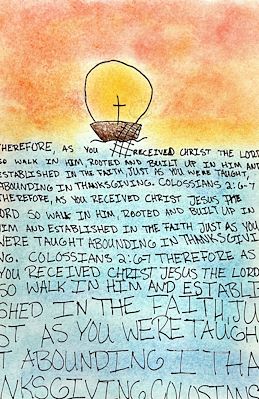 THEREFORE, AS YOU RECEIVED CHRIST THE LORD
SO WALK IN HIM, ROOTED AND BUILT UP IN HIM AND
ESTABLISHED IN THE FAITH, JUST AS YOU WERE TAUGHT,
ABOUNDING IN THANKSGIVING. COLOSSIANS 2:6-7
THEREFORE, AS YOU RECEIVED CHRIST JESUS THE
ORD SO WALK IN HIM, ROOTED AND BUILT UP IN
IM AND ESTABLISHED IN THE FAITH JUST AS YOU
WERE TAUGHT ABOUNDING IN THANKSGIVI
NG. COLOSSIANS 2:6-7 THEREFORE AS
YOU RECEIVED CHRIST JESUS THE LORD
SO WALK IN HIM AND ESTABLI
SHED IN THE FAITH, JU
ST AS YOU WERE TAUGH
T ABOUNDING I THA
NKSGIVING COLOSIANS